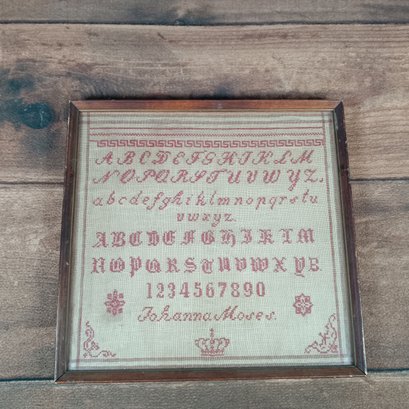 ABCDEFGHIKLM
NOPQRSTUVWYZ.
abcdefghiklmnopqrstu
vwxyz.
ABCDEFGHIKLM
NOPQRSTUVWXYZ.
1234567890
Johanna Moses.